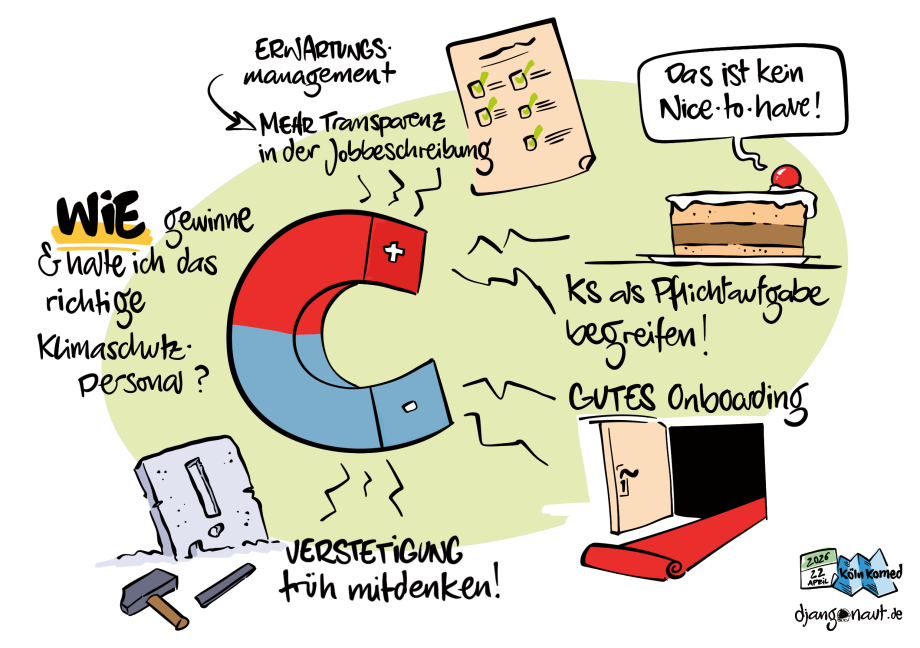 ERWARTUNGS-
management
MEHR Transparenz
in der Jobbeschreibung
Das ist kein
Nice-to-have!
WiE gewinne
& halte ich das
richtige
Klimaschutz-
personal?
+
-
KS als Pflichtaufgabe
begreifen!
GUTES Onboarding
!
VERSTETIGUNG
früh mitdenken!
2026
22
APRIL
Köln Komed
djangonaut.de